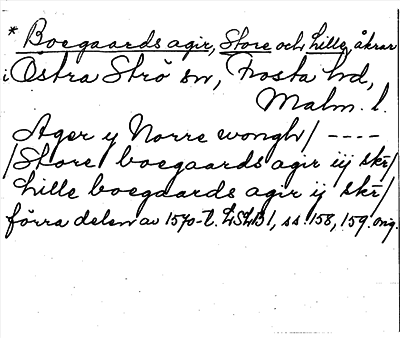 * Boegaards agir, Store och Lille, åkrar
i Östra Strö sn, Frosta hd,
Malm. l.
Ager y Norre wongh / ----
/ Store boegaards agir iij skr̄ /
Lille boegaards agir ij skr̄ /
förra delen av 1570-t. LSLB 1, ss. 158, 159. orig.